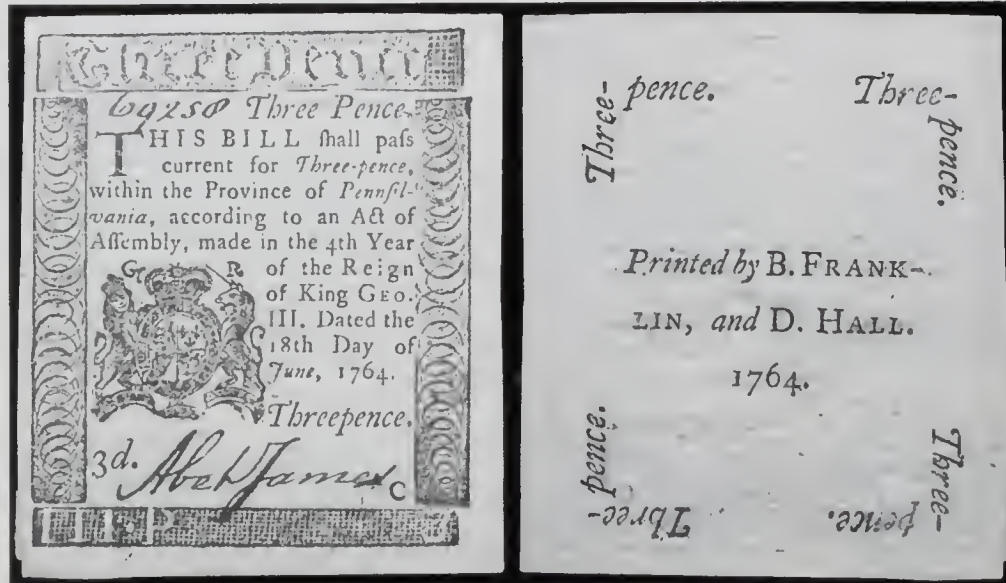 Three Pence
69258 Three Pence.
THIS BILL ſhall paſs
current for Three-pence,
within the Province of Pennſil-
vania, according to an Act of
Aſſembly, made in the 4th Year
G R of the Reign
of King GEO.
III. Dated the
18th Day of
June, 1764.
Threepence.
3d. Abel James C
III. P
Three-pence.
Three-pence.
Printed by B. FRANK-
LIN, and D. HALL.
1764.
Three-pence.
Three-pence.